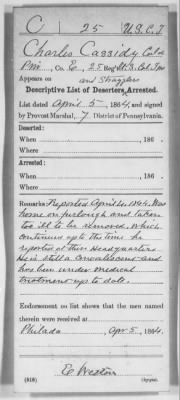 C 25 U.S.C.T
Charles Cassidy Col'd
Pvt., Co. E, 25 Reg't U.S. Col. Inf
Appears on and Stragglers
Descriptive List of Deserters, Arrested.
List dated April 5, 1864, and signed
by Provost Marshal, 7 District of Pennsylvania.
Deserted:
When , 186 .
Where
Arrested:
When , 186 .
Where
Remarks Reported April 4, 1864. Was
home on furlough and taken
too ill to be removed. Which
continued up to the time he
reported at these Headquarters
He is still a Convalescent and
has been under medical
treatment up to date.
Endorsement on list shows that the men named
therein were received at
Philada Apr. 5, 1864.
E Weston
(818) Copyist.